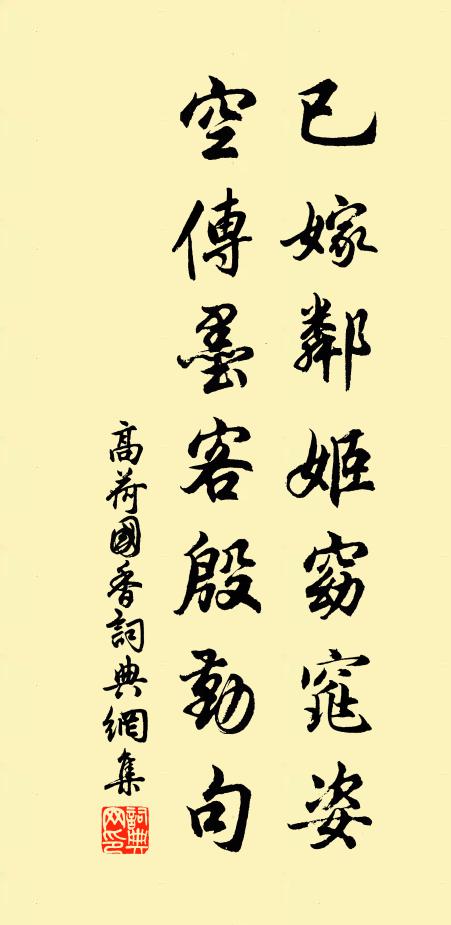 已嫁鄰姬窈窕姿
空傳墨客殷勤句
高荷國香詞典網集
詞典網印